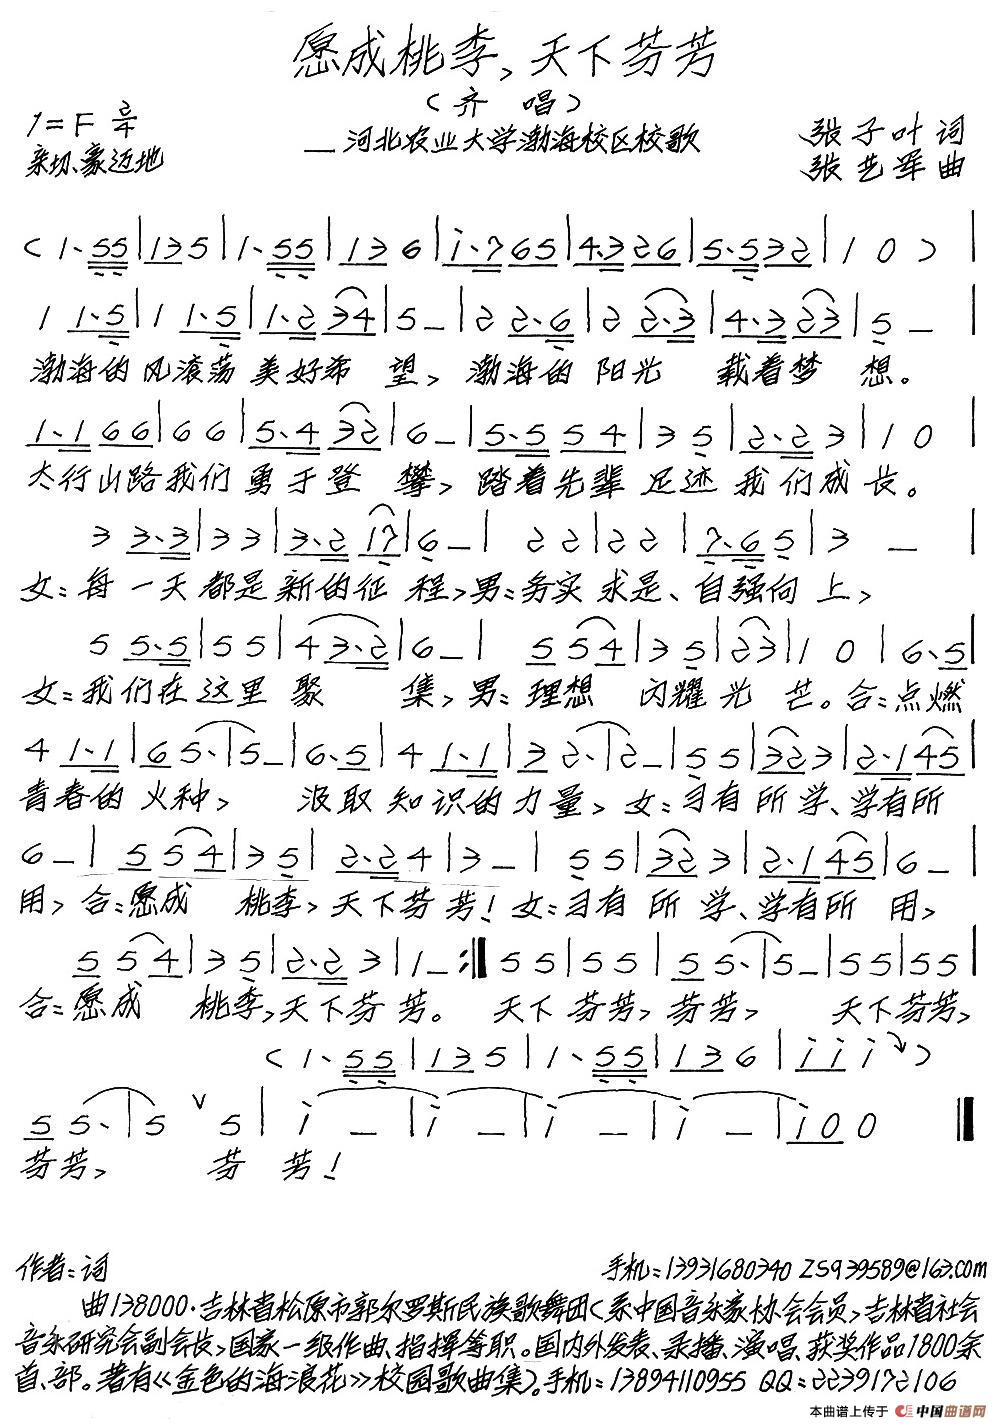 愿成桃李,天下芬芳
(齐 唱)
1=F 2/4
—河北农业大学渤海校区校歌
张子叶 词
亲切、豪迈地
张艺军 曲
(1·55|135|1·55|136|i·765|4·326|5·532|10)|
1 1·5|1 1·5|1·2 34|5–|2 2·6|2 2·3|4·3 23|5–|
渤海的风滚荡美好希 望, 渤海的 阳光 载着梦 想。
1·1 66|66|5·4 32|6–|5·5 54|3 5|2·2 3|10|
太行山路我们 勇于登 攀, 踏着先辈 足迹 我们成长。
3 3·3|33|3·2 17|6–| 22|22|7·6 5|3 –|
女:每一天都是新的征 程,男:务实 求是、自强向 上,
5 5·5|55|4 3·2|6–| 5 54|3 5|23|1 0|6·5|
女:我们在这里 聚 集,男:理想 闪耀光 芒。合:点燃
4 1·1|6 5·|5–|6·5|4 1·1|3 2·|2–|55|323|2·1 45|
青春的 火种, 汲取知识的力量,女:习有 所 学、学有所
6–| 5 54|3 5|2·2 4|3–| 55|323|2·1 45|6–|
用,合:愿成 桃李,天下芬芳!女:习有 所 学、学有所 用,
5 54|3 5|2·2 3|1–:‖55|55|5 5·|5–|55|55|
合:愿成 桃李,天下芬 芳。 天下 芬芳,芬芳, 天下芬芳,
(1·55|135|1·55|136|iii)
5 5·|5 ∨ 5|i –|i –|i –|i –|i00‖
芬芳, 芬 芳!
作者:词 手机:13931680340 ZS939589@163.com
曲138000·吉林省松原市郭尔罗斯民族歌舞团(系中国音乐家协会会员,吉林省社会
音乐研究会副会长,国家一级作曲、指挥等职。国内外发表、录播、演唱、获奖作品1800余
首、部。著有《金色的海浪花》校园歌曲集)。手机:13894110955 QQ:2239172106
本曲谱上传于 中国曲谱网